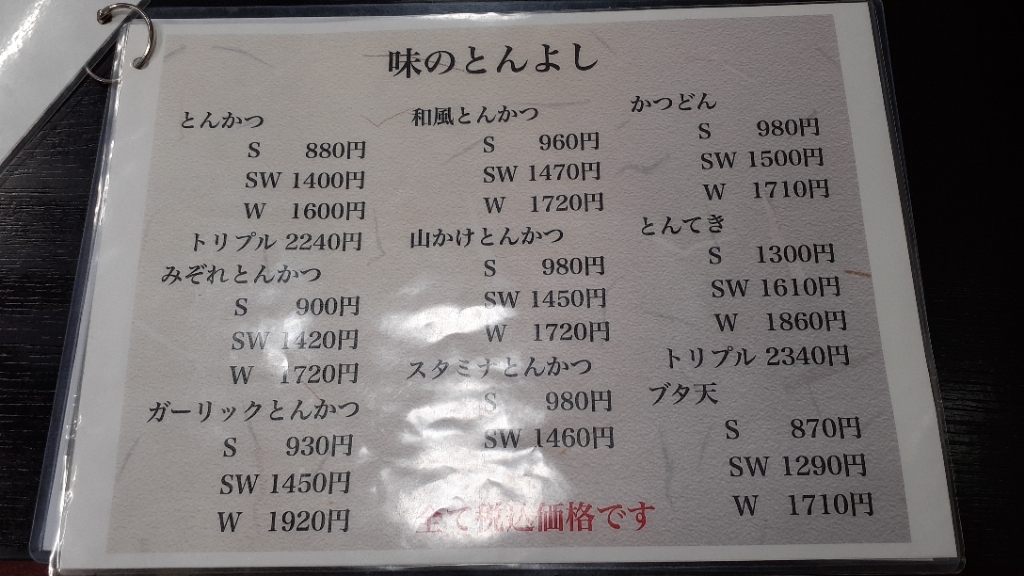 味のとんよし
とんかつ
S 880円
SW 1400円
W 1600円
トリプル 2240円
みぞれとんかつ
S 900円
SW 1420円
W 1720円
ガーリックとんかつ
S 930円
SW 1450円
W 1920円
和風とんかつ
S 960円
SW 1470円
W 1720円
山かけとんかつ
S 980円
SW 1450円
W 1720円
スタミナとんかつ
S 980円
SW 1460円
全て税込価格です
かつどん
S 980円
SW 1500円
W 1710円
とんてき
S 1300円
SW 1610円
W 1860円
トリプル 2340円
ブタ天
S 870円
SW 1290円
W 1710円